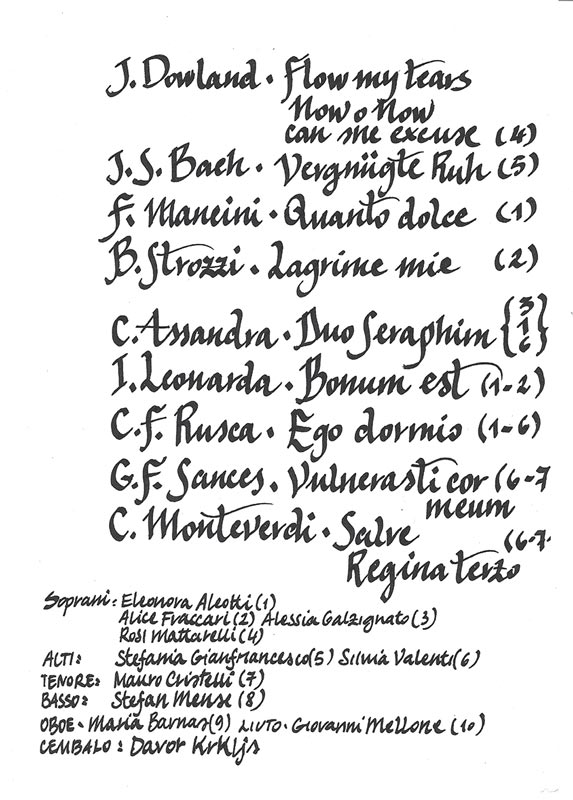 J. Dowland · Flow my tears
Now o Now
can me excuse (4)
J. S. Bach · Vergnügte Ruh (5)
F. Mancini · Quanto dolce (1)
B. Strozzi · Lagrime mie (2)
C. Assandra · Duo Seraphim { 3 1 6 }
I. Leonarda · Bonum est (1-2)
C. F. Rusca · Ego dormio (1-6)
G. F. Sances · Vulnerasti cor (6-7
meum
C. Monteverdi · Salve (6-7-
Regina terzo
Soprani: Eleonora Aleotti (1)
Alice Fraccari (2) Alessia Galzignato (3)
Rosi Mattarelli (4)
ALTI: Stefania Gianfrancesco (5) Silvia Valenti (6)
TENORE: Mauro Cristelli (7)
BASSO: Stefan Mense (8)
OBOE · Maria Barnas (9) LIUTO · Giovanni Mellone (10)
CEMBALO : Davor Krkljs